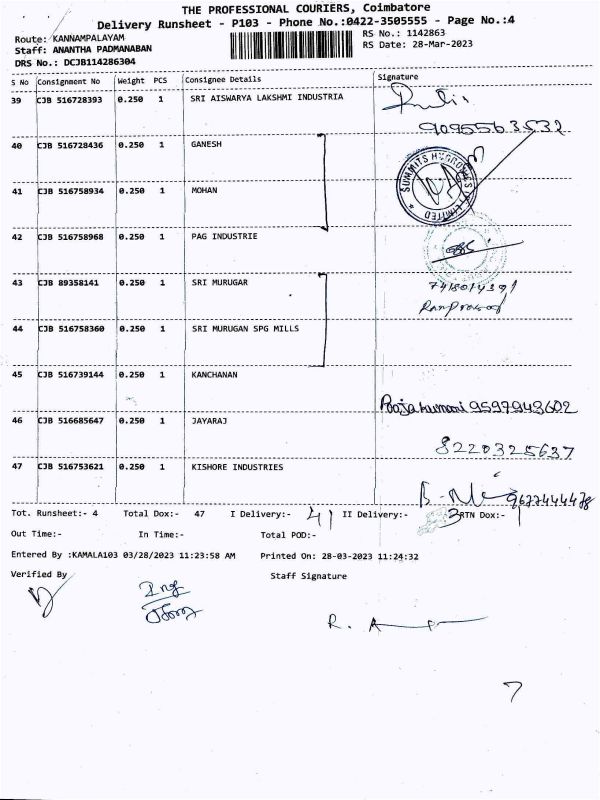 THE PROFESSIONAL COURIERS, Coimbatore
Delivery Runsheet - P103 - Phone No.:0422-3505555 - Page No.:4
Route: KANNAMPALAYAM
RS No.: 1142863
Staff: ANANTHA PADMANABAN
RS Date: 28-Mar-2023
DRS No.: DCJB114286304
S No Consignment No Weight PCS Consignee Details Signature
39 CJB 516728393 0.250 1 SRI AISWARYA LAKSHMI INDUSTRIA
9095563532
40 CJB 516728436 0.250 1 GANESH
41 CJB 516758934 0.250 1 MOHAN
42 CJB 516758968 0.250 1 PAG INDUSTRIE
43 CJB 89358141 0.250 1 SRI MURUGAR
7418014391
Ramprasad
44 CJB 516758360 0.250 1 SRI MURUGAN SPG MILLS
45 CJB 516739144 0.250 1 KANCHANAN
Poojakumari 9597943602
46 CJB 516685647 0.250 1 JAYARAJ
8220325637
47 CJB 516753621 0.250 1 KISHORE INDUSTRIES
9677444478
Tot. Runsheet:- 4 Total Dox:- 47 I Delivery:- 41 II Delivery:- 3 RTN Dox:- 1
Out Time:- In Time:- Total POD:-
Entered By :KAMALA103 03/28/2023 11:23:58 AM Printed On: 28-03-2023 11:24:32
Verified By Staff Signature
7